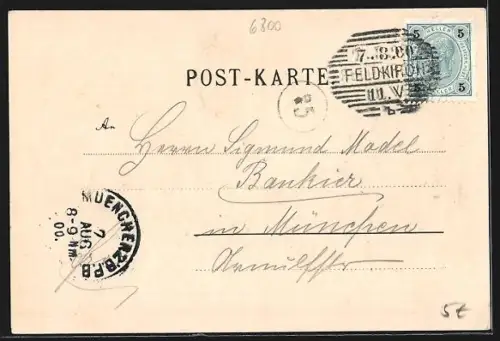 6800
5 5
5 5
7.8.00
FELDKIRCH
11.V
b
POST-KARTE
85
An
Herrn Sigmund Model
Bankier
in München
Arnulfstr
MUENCHEN 2 B.P.B
7
AUG
8-9 Nm.
00.
5€